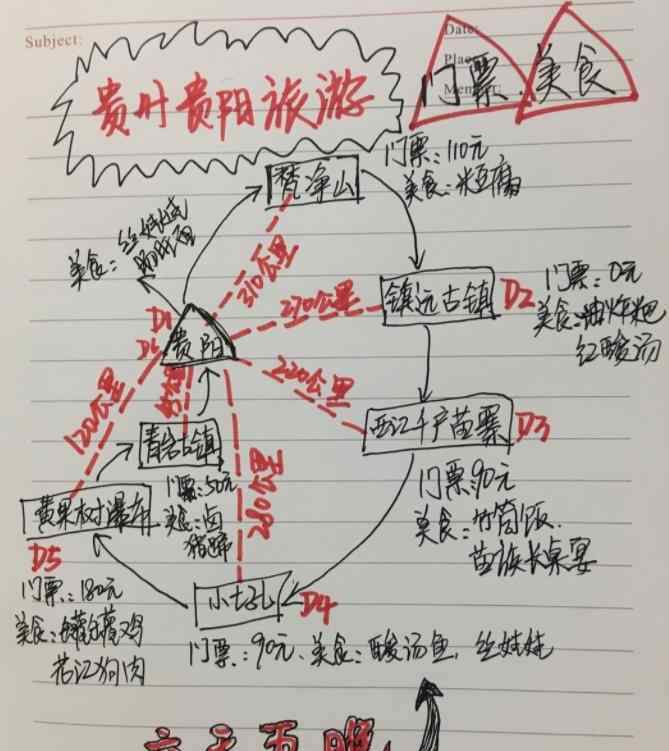 Subject:
Date:
贵州贵阳旅游
门票.美食
门票:110元
美食:米豆腐
梵净山
美食:丝娃娃
310公里
镇远古镇
D2
门票:0元
美食:油炸粑
红酸汤
270公里
D1
D6
贵阳
220公里
西江千户苗寨
D3
120公里
青岩古镇
280公里
门票:90元
美食:竹筒饭.
苗族长桌宴
门票:50元
美食:卤
猪蹄
黄果树瀑布
D5
小七孔
D4
门票:180元
美食:罐罐鸡
花江狗肉
门票:90元、美食:酸汤鱼,丝娃娃
六天五晚